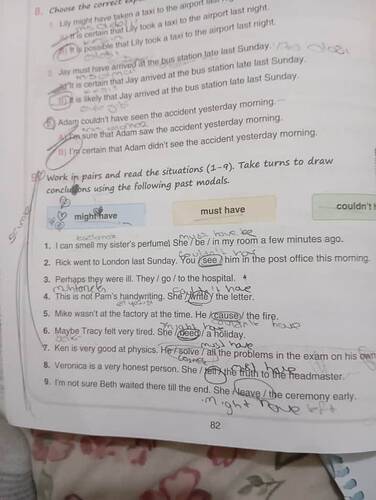 8. Choose the correct
1. Lily might have taken a taxi to the airport last night.
A) It is certain that Lily took a taxi to the airport last night.
B) It is possible that Lily took a taxi to the airport last night.
2. Jay must have arrived at the bus station late last Sunday.
A) It is certain that Jay arrived at the bus station late last Sunday.
B) It is likely that Jay arrived at the bus station late last Sunday.
3. Adam couldn't have seen the accident yesterday morning.
A) I'm sure that Adam saw the accident yesterday morning.
B) I'm certain that Adam didn't see the accident yesterday morning.
9. Work in pairs and read the situations (1-9). Take turns to draw
conclusions using the following past modals.
might have must have couldn't
must have be
1. I can smell my sister's perfume! She / be / in my room a few minutes ago.
couldn't have
2. Rick went to London last Sunday. You / see / him in the post office this morning.
3. Perhaps they were ill. They / go / to the hospital.
couldn't have
4. This is not Pam's handwriting. She / write / the letter.
5. Mike wasn't at the factory at the time. He / cause / the fire.
might have couldn't have
6. Maybe Tracy felt very tired. She / need / a holiday.
must have
7. Ken is very good at physics. He / solve / all the problems in the exam on his own
must have
8. Veronica is a very honest person. She / tell / the truth to the headmaster.
9. I'm not sure Beth waited there till the end. She / leave / the ceremony early.
might have left
82